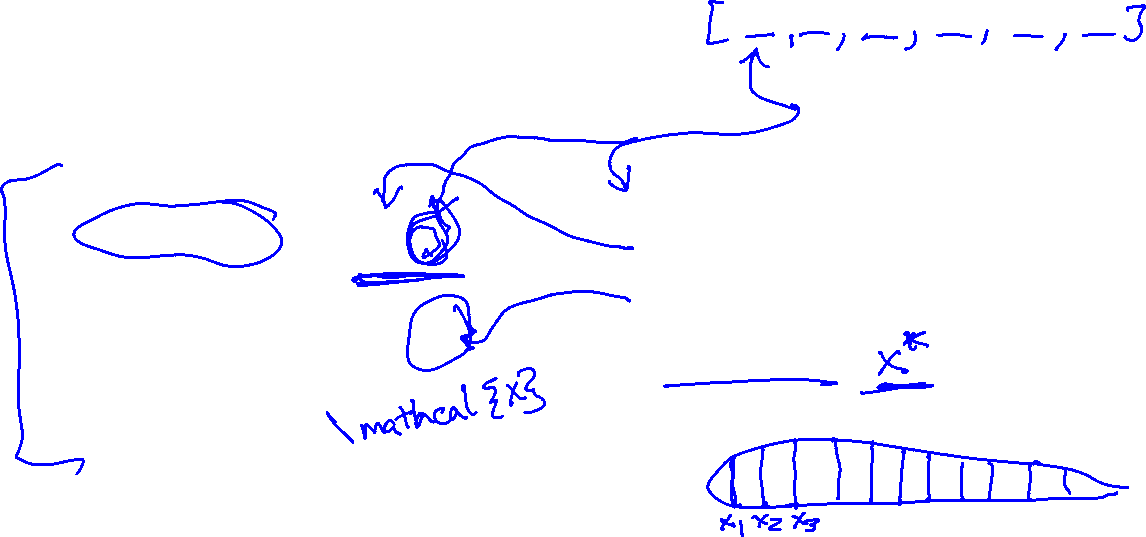 [ _, _, _, _, _, _ ]
\mathcal{x}
x*
x1 x2 x3